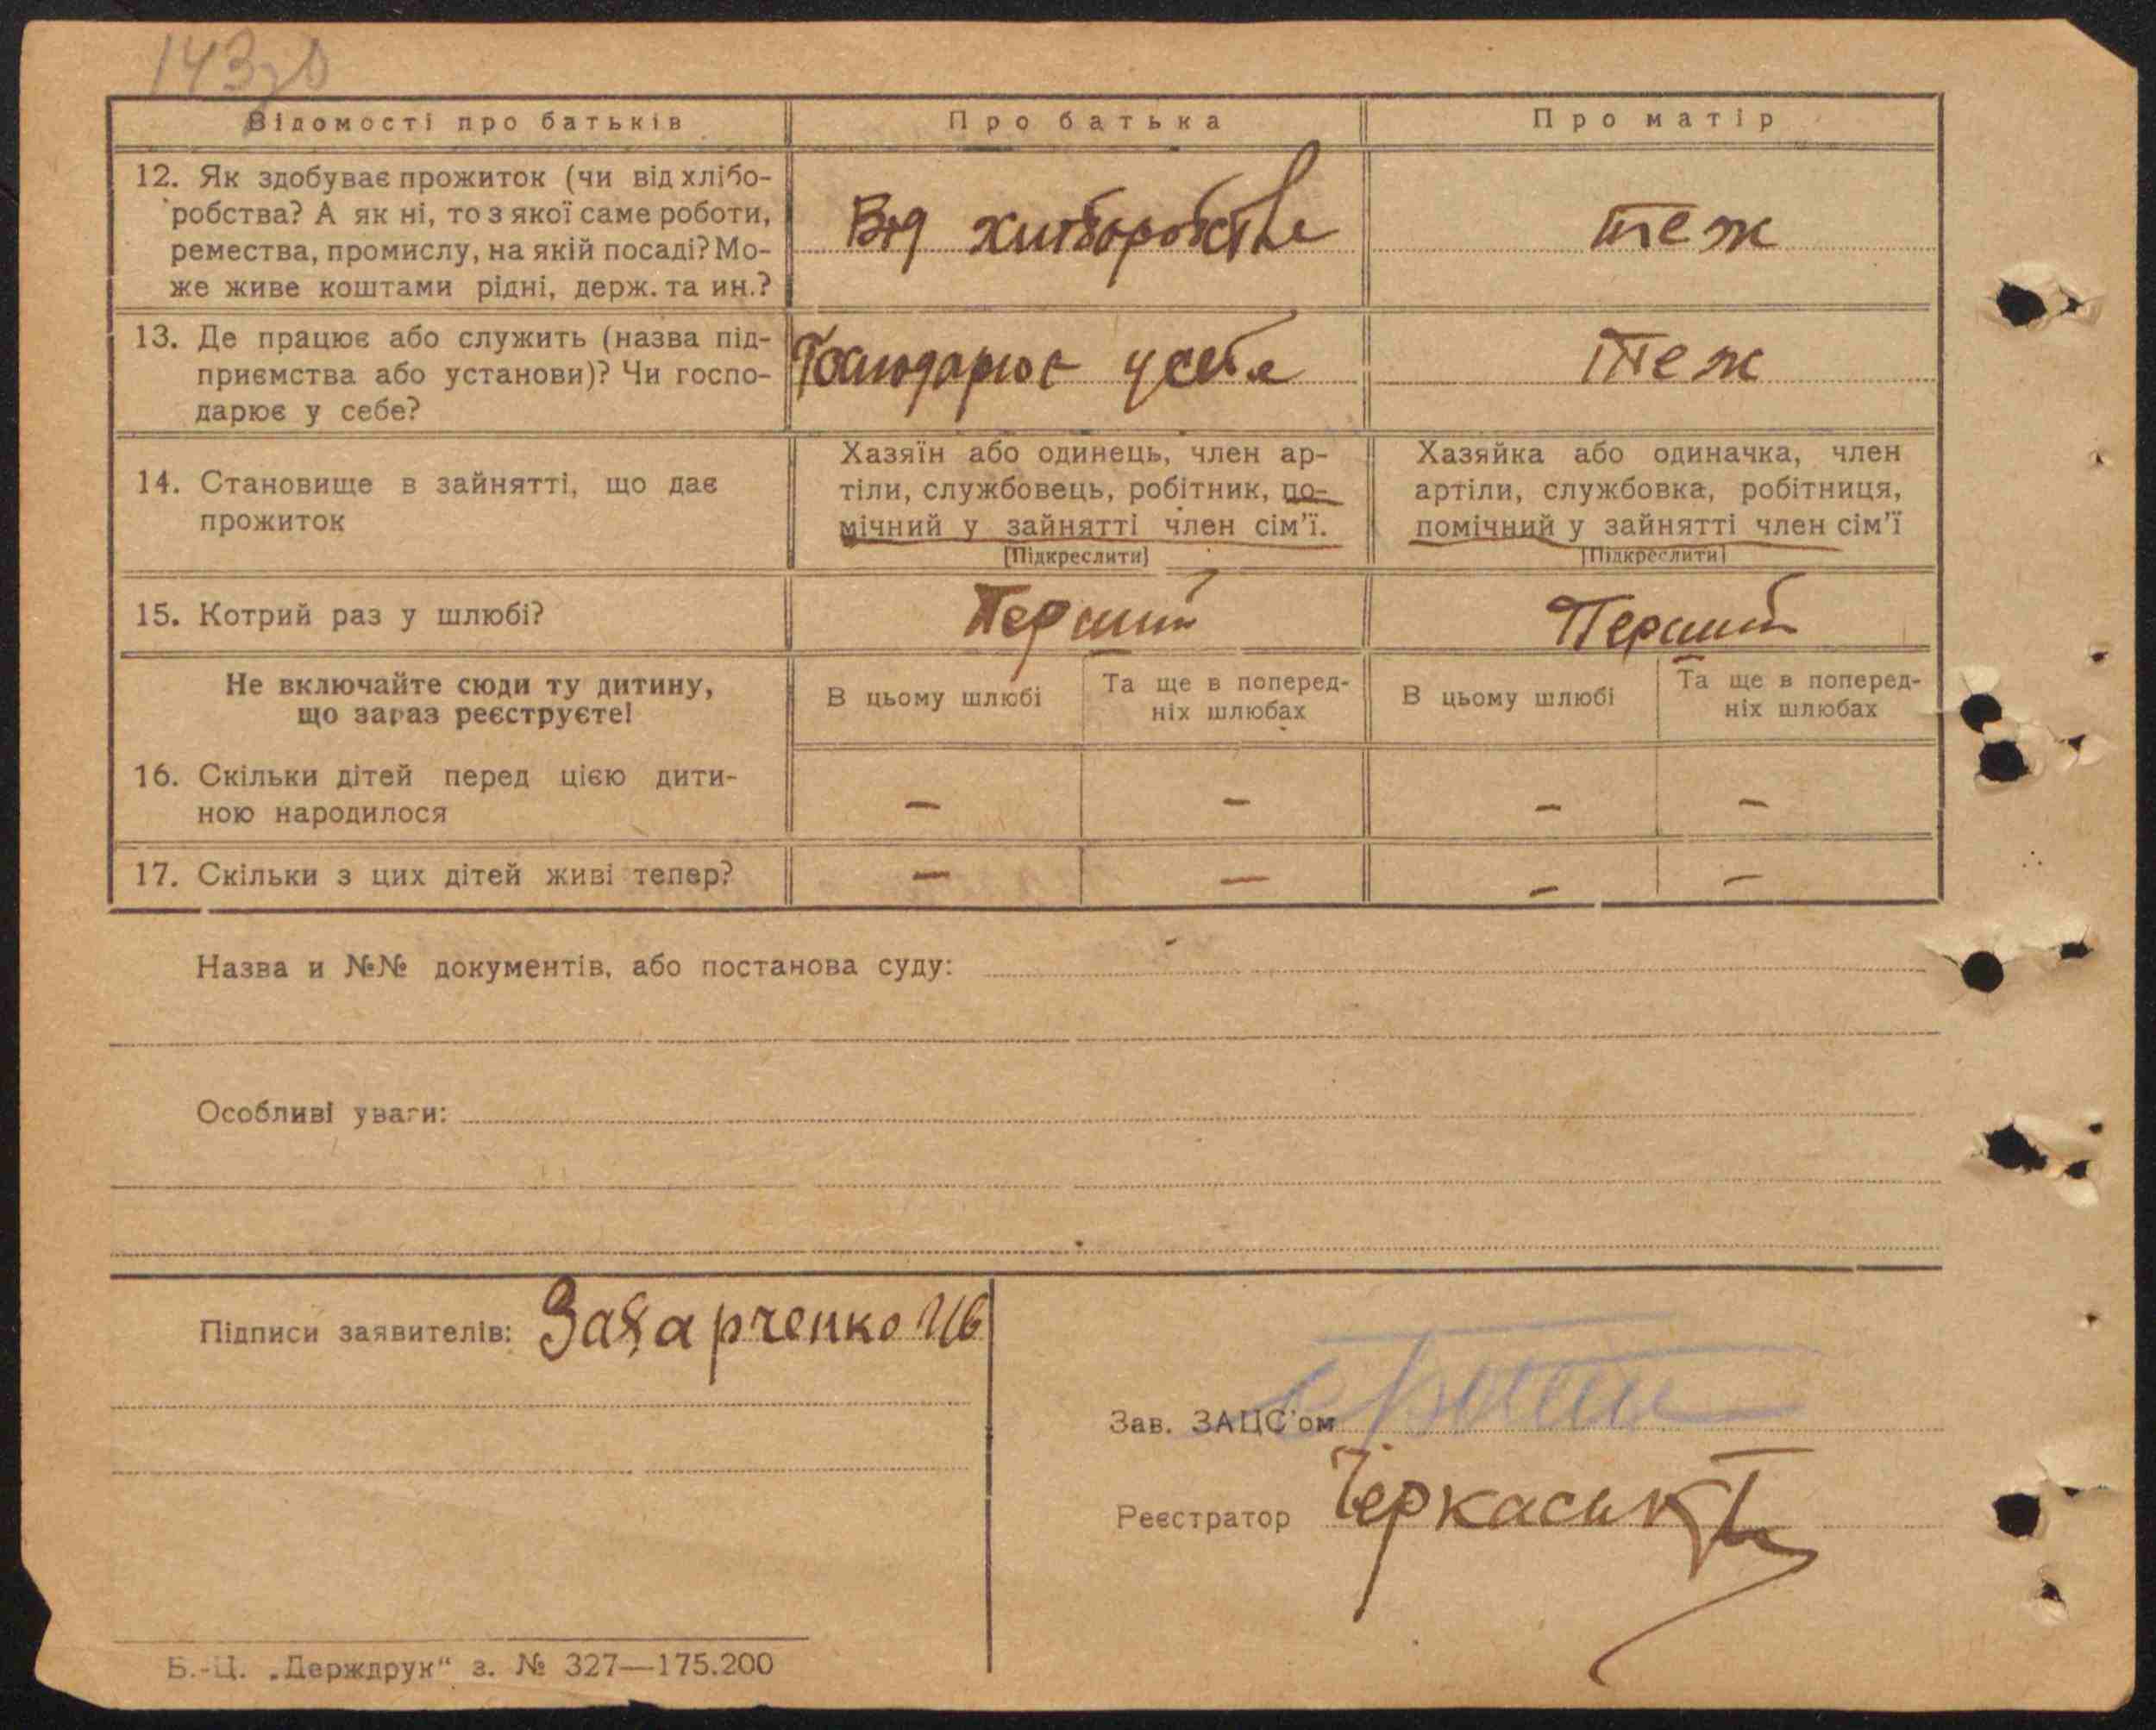 143зв
Відомості про батьків
Про батька
Про матір
12. Як здобуває прожиток (чи від хлібо-
робства? А як ні, то з якої саме роботи,
ремества, промислу, на якій посаді? Мо-
же живе коштами рідні, держ. та ин.?
Від хліборобства
теж
13. Де працює або служить (назва під-
приємства або установи)? Чи госпо-
дарює у себе?
Господарює у себе
теж
14. Становище в зайнятті, що дає
прожиток
Хазяїн або одинець, член ар-
тіли, службовець, робітник, по-
мічний у зайнятті член сім'ї.
[Підкреслити]
Хазяйка або одиначка, член
артіли, службовка, робітниця,
помічний у зайнятті член сім'ї
[Підкреслити]
15. Котрий раз у шлюбі?
Перший
Перший
Не включайте сюди ту дитину,
що зараз реєструєте!
В цьому шлюбі
Та ще в поперед-
ніх шлюбах
В цьому шлюбі
Та ще в поперед-
ніх шлюбах
16. Скільки дітей перед цією дити-
ною народилося
– – – –
17. Скільки з цих дітей живі тепер?
– – – –
Назва и №№ документів, або постанова суду:
Особливі уваги:
Підписи заявителів: Захарченко Ив
Зав. ЗАЦС'ом
Реєстратор Черкаськ
Б.-Ц. „Держдрук" з. № 327—175.200